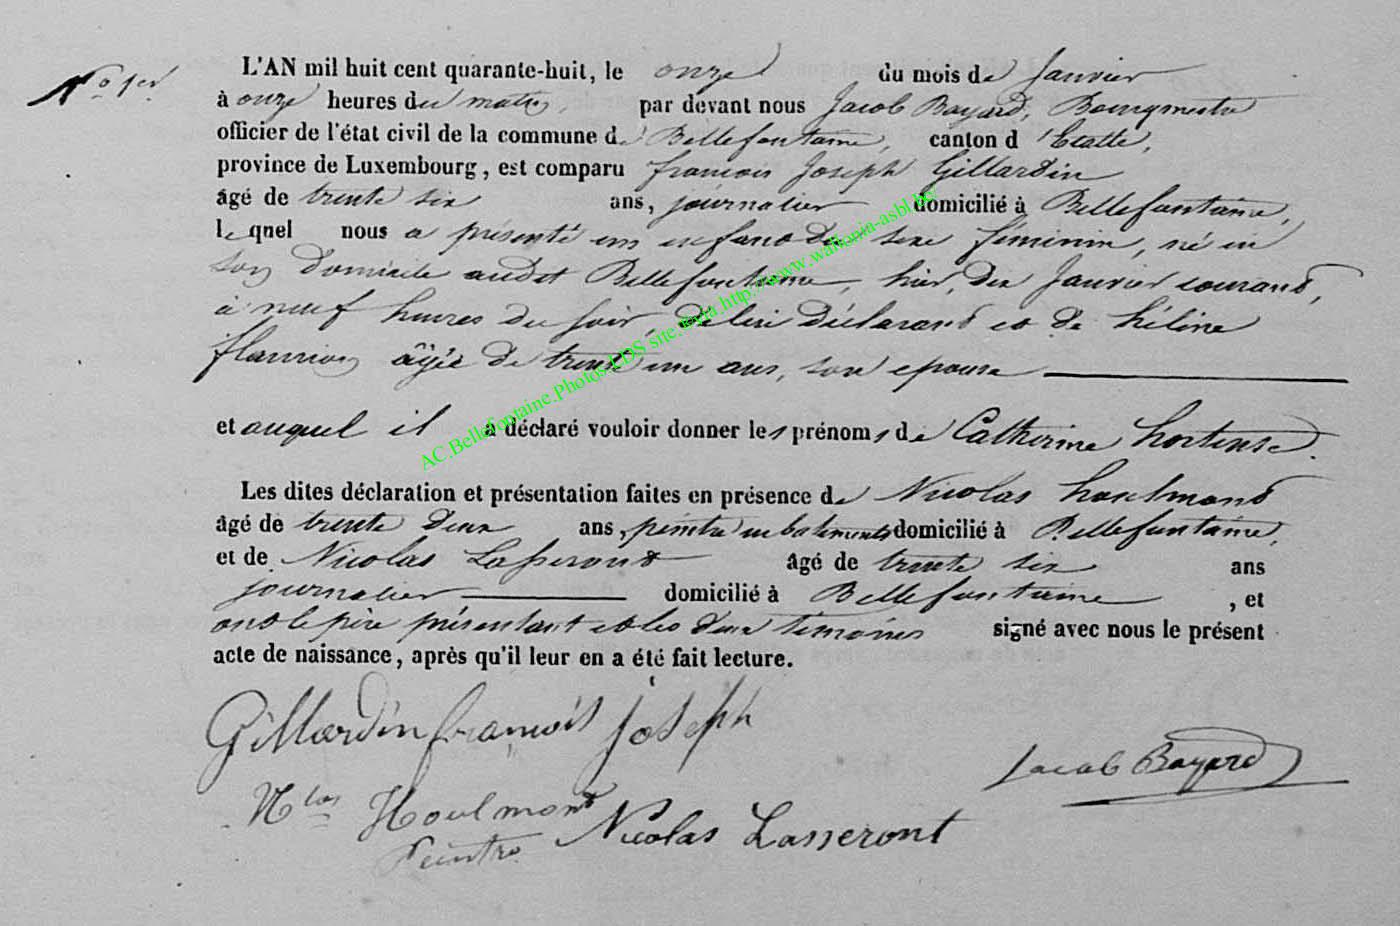 N° 1er
L'AN mil huit cent quarante-huit, le onze du mois de Janvier
à onze heures du matin, par devant nous Jacob Bayard, Bourgmestre
officier de l'état civil de la commune de Bellefontaine, canton d'Etalle,
province de Luxembourg, est comparu françois Joseph Gillardin
âgé de trente six ans, journalier domicilié à Bellefontaine,
lequel nous a présenté un enfant du sexe féminin, né en
son domicile audit Bellefontaine, hier, dix Janvier courant,
à neuf heures du soir, de lui déclarant et de hélène
âgée de trente un ans, son epouse
et auquel il a déclaré vouloir donner les prénoms de Catherine hortense.
Les dites déclaration et présentation faites en présence de Nicolas houlmont
âgé de trente deux ans, peintre en batiments domicilié à Bellefontaine,
et de Nicolas Lasseront âgé de trente six ans
journalier domicilié à Bellefontaine, et
ont le père présentant et les deux témoins signé avec nous le présent
acte de naissance, après qu'il leur en a été fait lecture.
Gillardin françois Joseph
Jacob Bayard
Nlas Houlmont
Peintre Nicolas Lasseront
AC.Bellefontaine.Photos LDS site via http://www.wallonia-asbl.be/